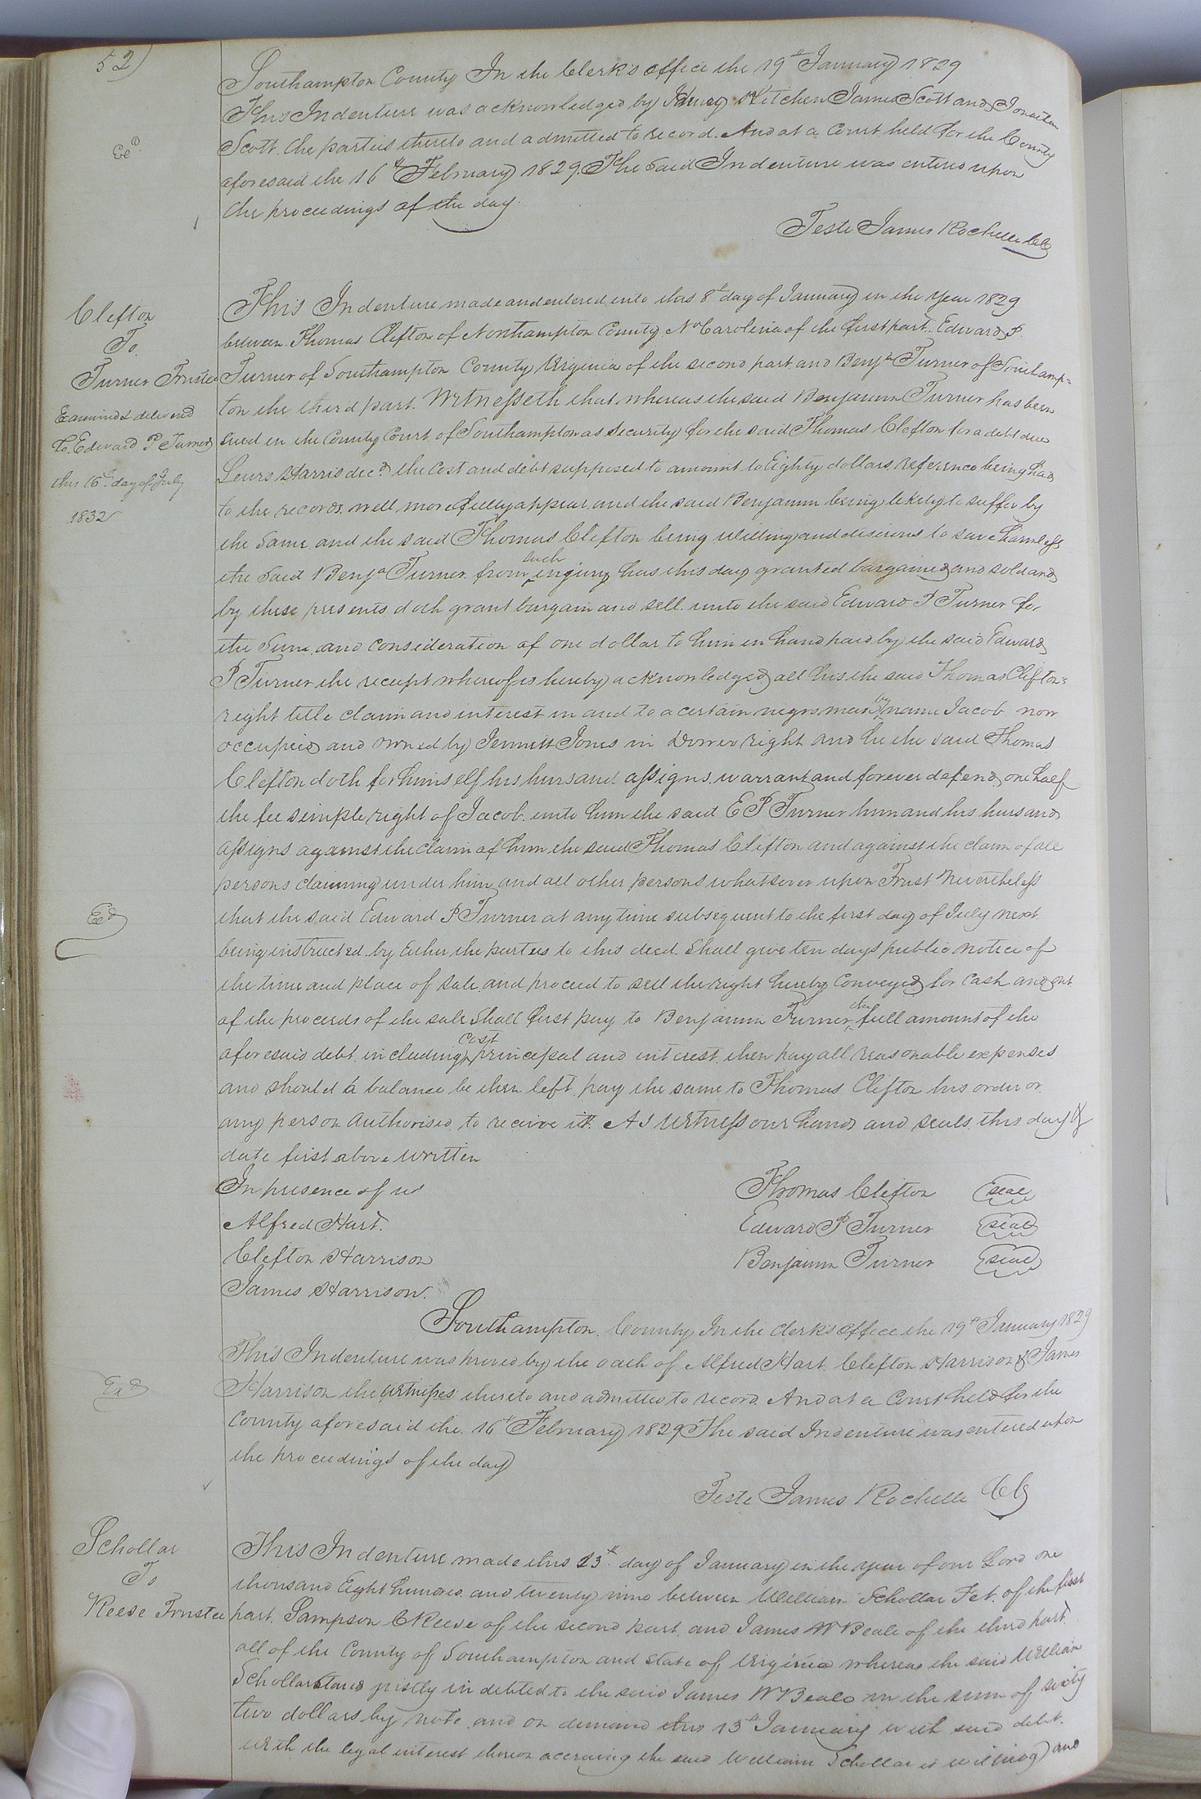 52)
Southampton County In the Clerk's office the 19th January 1829
This Indenture was acknowledged by Kitchen James Scott and Jonathan
Scott the parties thereto and admitted to record. And at a Court held for the County
aforesaid the 16th February 1829. The said Indenture was entered upon
the proceedings of the day.
Teste James Rochelle Clk
Exd
Clifton
To
Turner Trustee
Examined & delivered
To Edward P Turner
this 16th day of July
1832
This Indenture made and entered into this 8th day of January in the year 1829
between Thomas Clifton of Northampton County No Carolina of the first part. Edward P.
Turner of Southampton County Virginia of the second part and Benja Turner of Southamp-
ton the third part. Witnesseth that whereas the said Benjamin Turner has been
sued in the County Court of Southampton as security for the said Thomas Clifton for a debt due
Lewis Harris decd the cost and debt supposed to amount to Eighty dollars, reference being had
to the records will more fully appear and the said Benjamin being likely to suffer by
the same and the said Thomas Clifton being willing and desirous to save harmless
the said Benja Turner from such injury has this day granted bargained and sold and
by these presents doth grant bargain and sell unto the said Edward P Turner for
the sum and consideration of one dollar to him in hand paid by the said Edward
P Turner the receipt whereof is hereby acknowledged all his the said Thomas Clifton's
right title claim and interest in and to a certain negro man by name Jacob now
occupied and owned by Jennett Jones in Dower right and he the said Thomas
Clifton doth for himself his heirs and assigns. warrant and forever defend one half
the fee simple right of Jacob unto him the said E P Turner him and his heirs and
assigns against the claim of him the said Thomas Clifton and against the claim of all
persons claiming under him and all other persons whatsoever upon Trust Nevertheless
that the said Edward P Turner at any time subsequent to the first day of July next
being instructed by Either the parties to this deed shall give ten days public notice of
the time and place of sale and proceed to sell the right hereby conveyed for cash and out
of the proceeds of the sale shall first pay to Benjamin Turner the full amount of the
aforesaid debt including cost principal and interest, then pay all reasonable expenses
and should a balance be then left pay the same to Thomas Clifton his order or
any person authorised to receive it. As witness our hands and seals this day &
date first above written
Exd
In presence of us
Alfred Hart.
Clifton Harrison
James Harrison.
Thomas Clifton seal
Edward P Turner seal
Benjamin Turner seal
Southampton County In the Clerk's office the 19th January 1829
This Indenture was proved by the oath of Alfred Hart Clifton Harrison & James
Harrison the witnesses thereto and admitted to record And at a Court held for the
County aforesaid the 16th February 1829 The said Indenture was entered upon
the proceedings of the day
Exd
Teste James Rochelle Clk
Schollar
To
Reese Trustee
This Indenture made this 13th day of January in the year of our Lord one
thousand Eight hundred and twenty nine between William Schollar of the first
part. Sampson C Reese of the second part. and James W Beale of the third part.
all of the County of Southampton and state of Virginia whereas the said William
Schollar stands justly indebted to the said James W Beale in the sum of sixty
two dollars by note and on demand this 13th January with said debt.
with the legal interest thereon accruing the said William Schollar is willing and